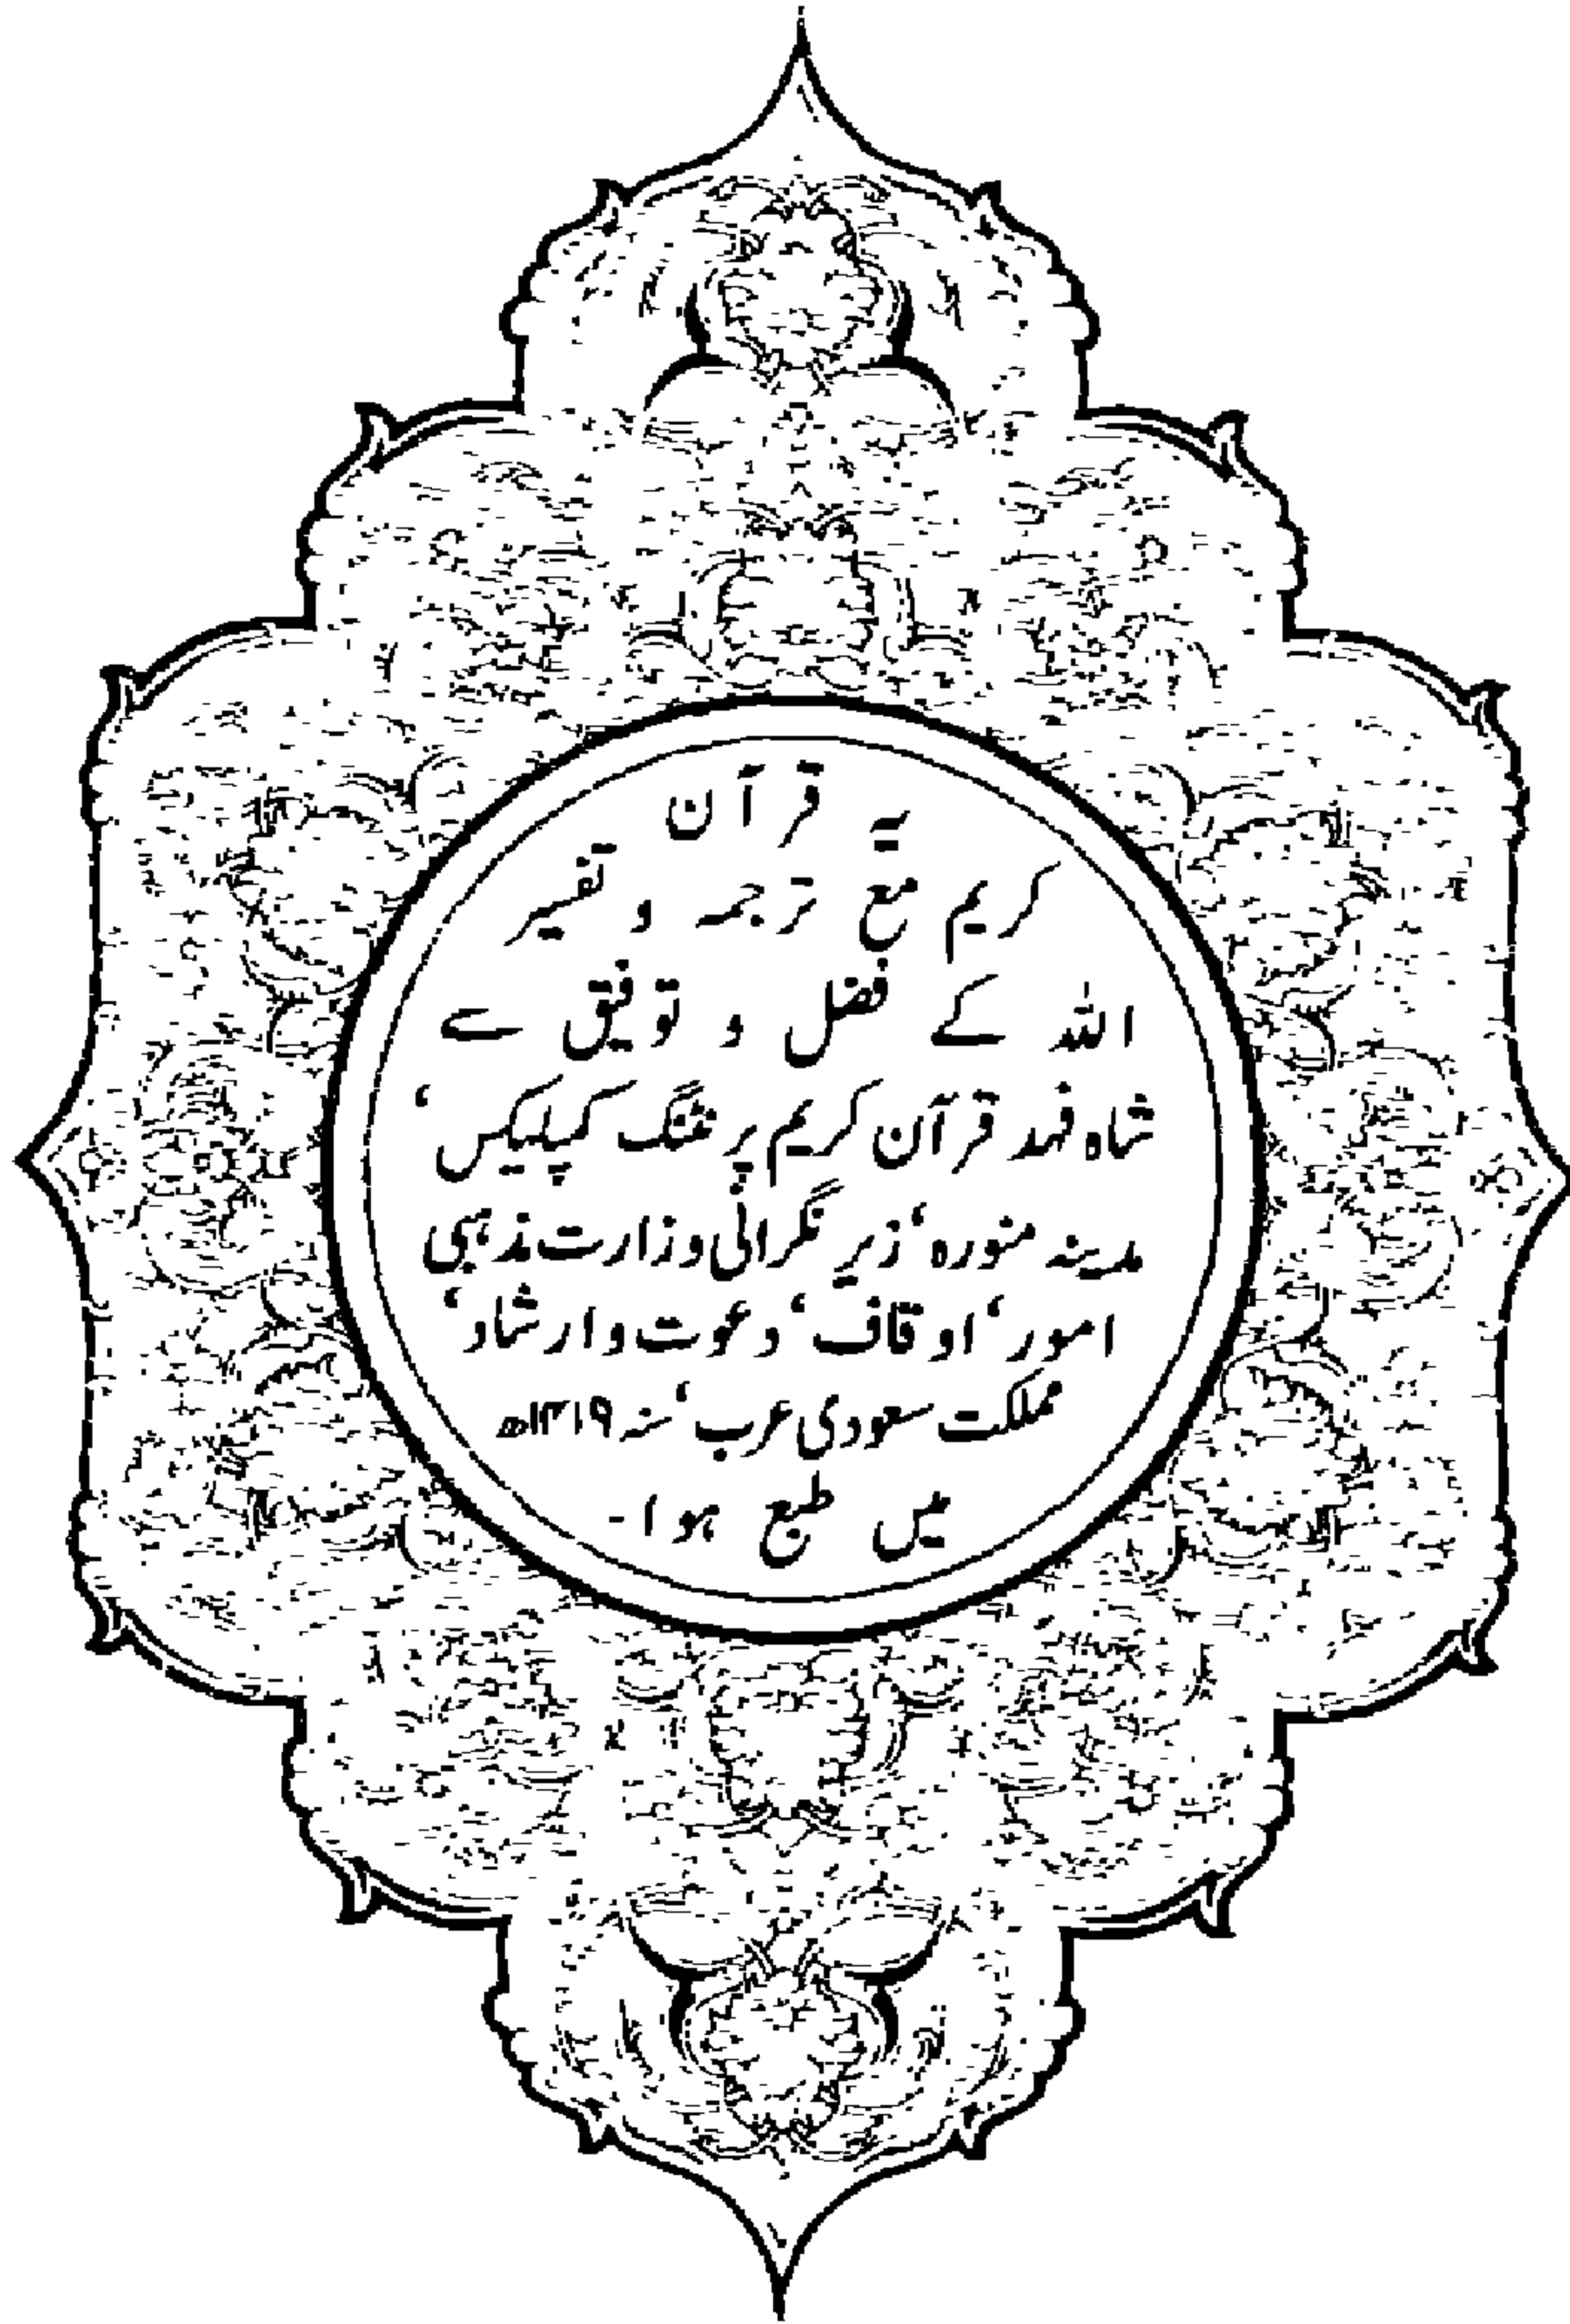 یہ قرآن
کریم مع ترجمہ و تفسیر
اللہ کے فضل و توفیق سے
شاہ فہد قرآن کریم پرنٹنگ کمپلیکس‘
مدینہ منورہ‘ زیر نگرانی وزارت مذہبی
امور‘ اوقاف‘ دعوت و ارشاد‘
مملکت سعودی عرب‘ سنہ ۱۴۱۹ھ
میں طبع ہوا۔